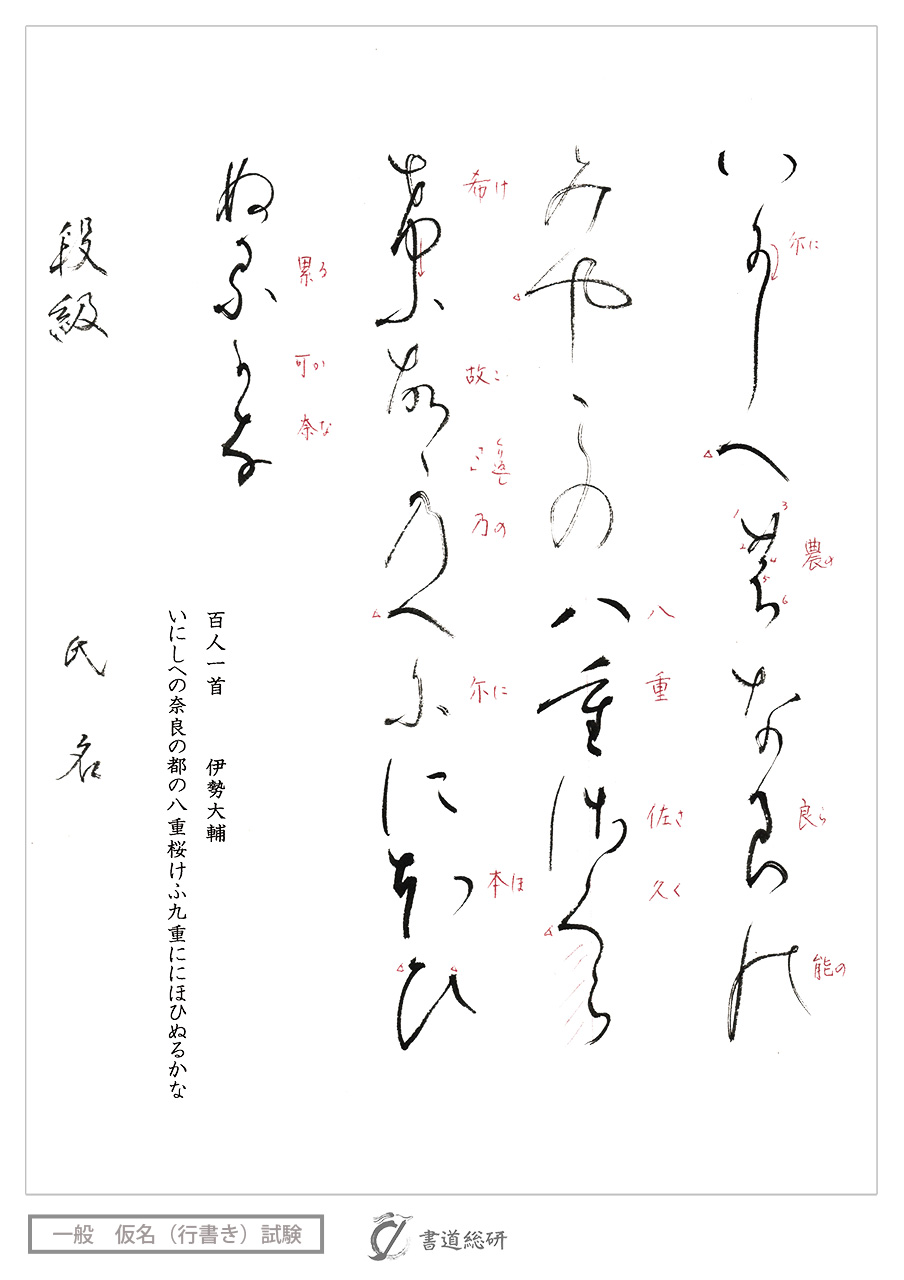 い尓しへ農な良能
尓に
農の
良ら
能の
みやこの八重佐久ら
八
重
佐さ
久く
希ふ故ゝ乃へ尓に本ひ
希け
故こ
くり返し
乃の
尓に
本ほ
ぬ累可奈
累る
可か
奈な
百人一首　伊勢大輔
いにしへの奈良の都の八重桜けふ九重ににほひぬるかな
段級　氏名
一般　仮名（行書き）試験
書道総研